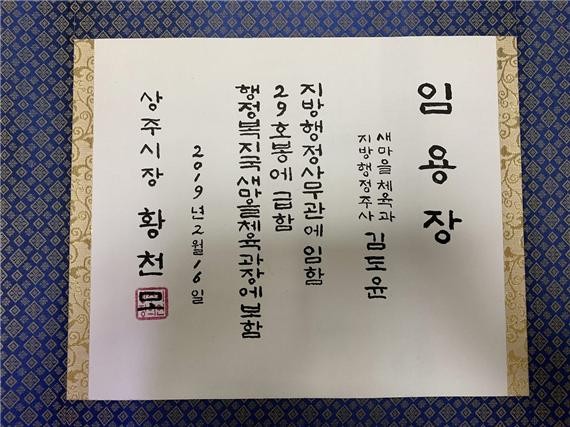 임용장
새마을체육과
지방행정주사 김도윤
지방행정사무관에 임함
29호봉에 급함
행정복지국새마을체육과장에보함
2019년2월16일
상주시장 황천모